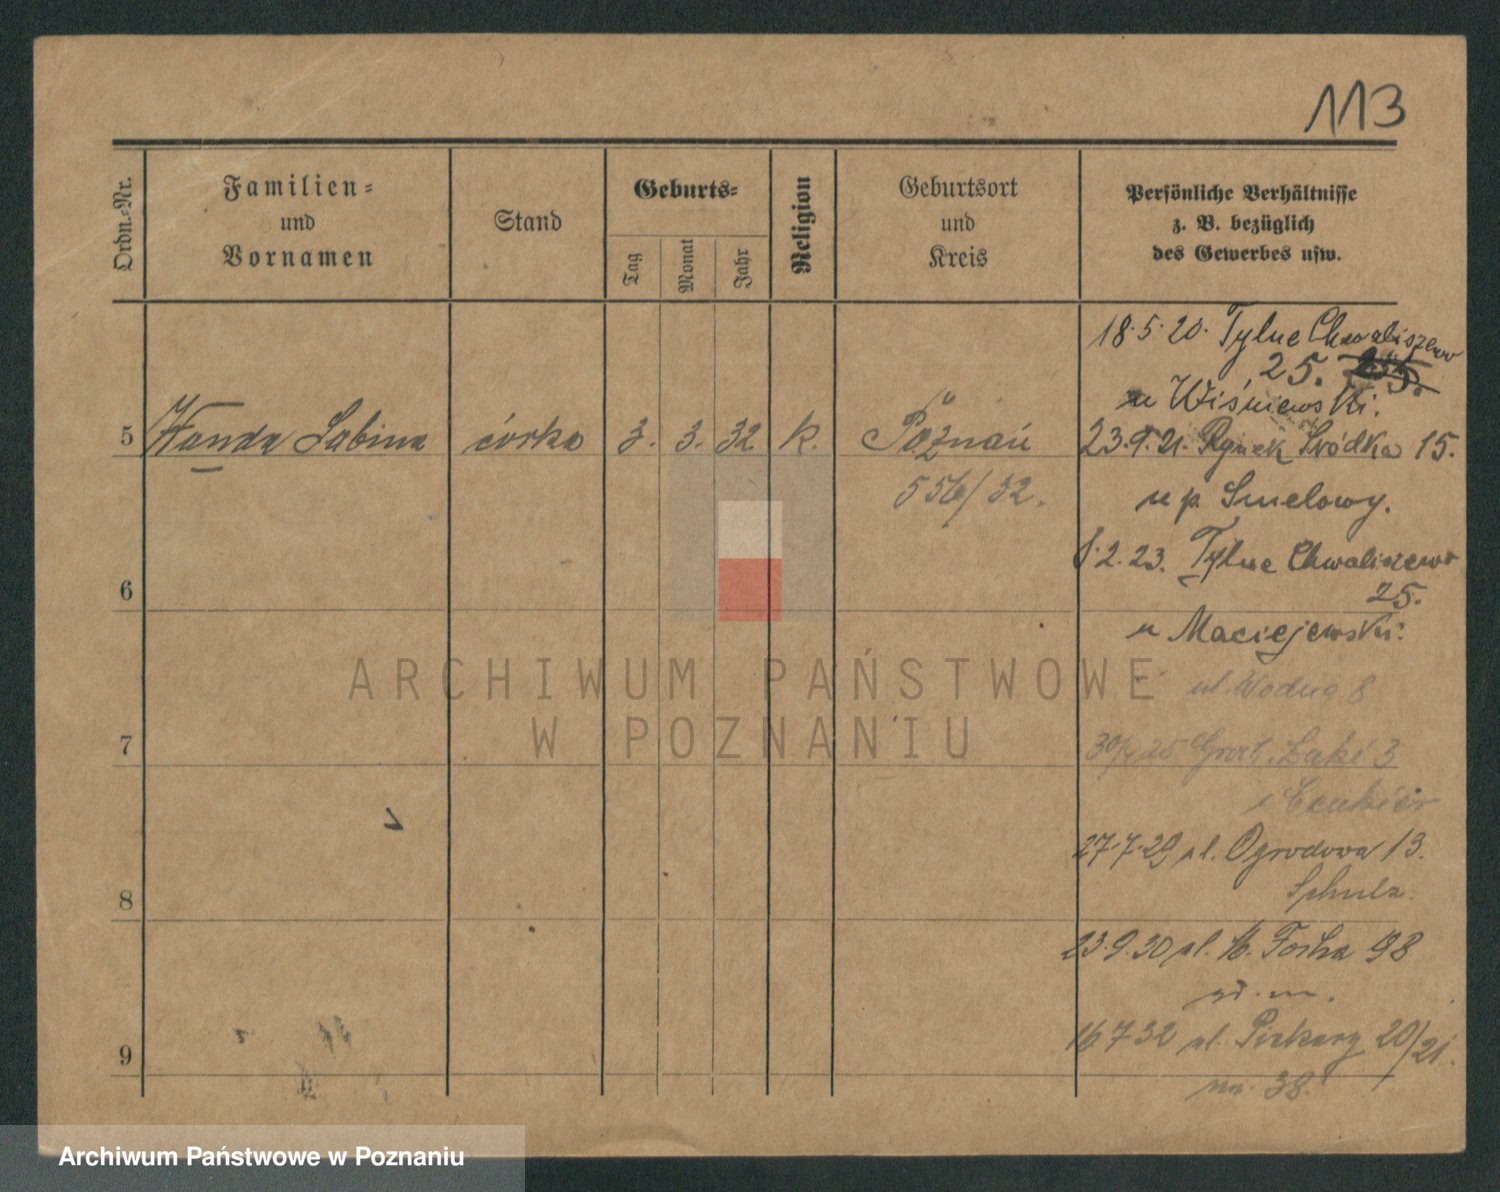 113
Ordn.-Nr.
Familien-
und
Vornamen
Stand
Geburts-
Tag
Monat
Jahr
Religion
Geburtsort
und
Kreis
Persönliche Verhältnisse
z. B. bezüglich
des Gewerbes usw.
18.5.20. Tylne Chwaliszewo
25.
u Wiśniewski.
5 Wanda Sabina córka 3. 3. 32 k. Poznań
556/32.
23.9.21. Rynek Śródka 15.
u p. Smelowy.
8.2.23. Tylne Chwaliszewo
25.
6
u Maciejewski:
ul. Wodna 8
7
30/4 25 Grobl. Łąki 3
27.7.29 ul. Ogrodowa 13.
Schulz.
8
23.9.30 ul. M. Focha 98
9
16 7 32 ul. Piekary 20/21.
m. 38.
ARCHIWUM PAŃSTWOWE
W POZNANIU
Archiwum Państwowe w Poznaniu